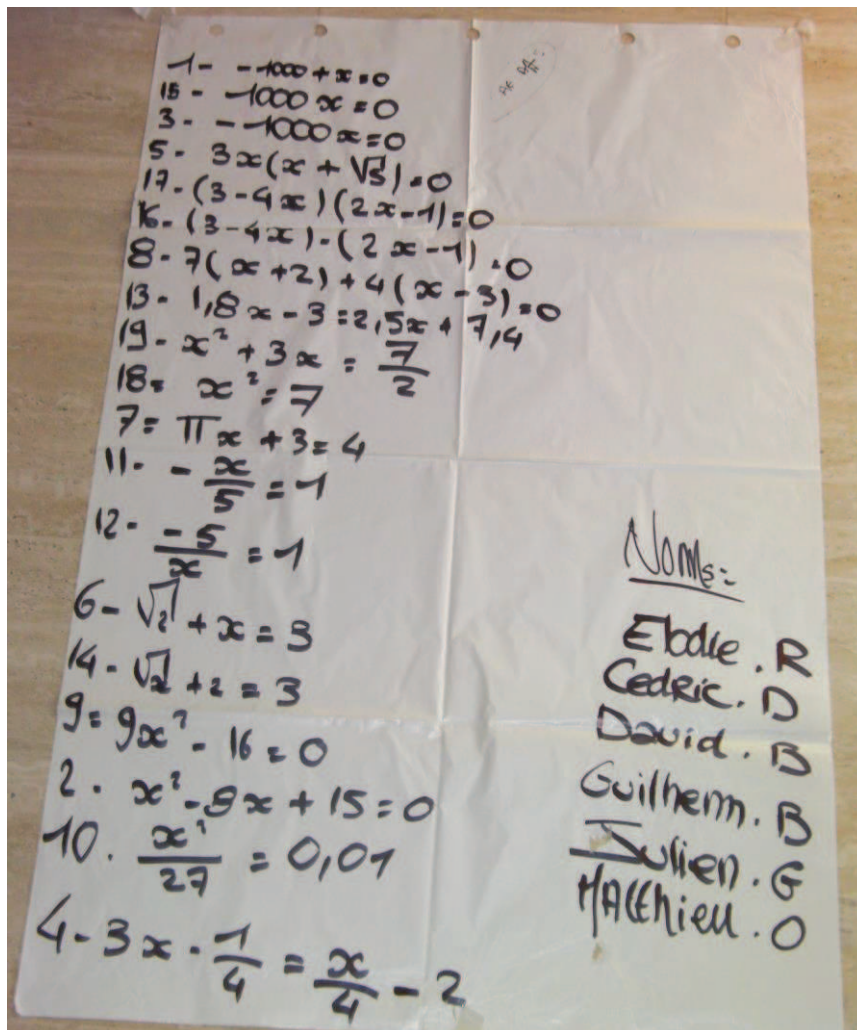 1- -1000+x=0
15- -1000x=0
3- -1000x=0
5- 3x(x+√5)=0
17-(3-4x)(2x-1)=0
16-(3-4x)-(2x-1)=0
8-7(x+2)+4(x-3)=0
13- 1,8x-3=2,5x+7,4
19- x²+3x=7/2
18= x²=7
7= πx+3=4
11- -x/5=1
12- -5/x=1
6- √2+x=3
14- √x+2=3
9= 9x²-16=0
2- x²-8x+15=0
10. x²/27=0,01
4-3x-1/4=x/4-2
Noms:
Elodie.R
Cedric.D
David.B
Guilherm.B
Julien.G
Matthieu.O